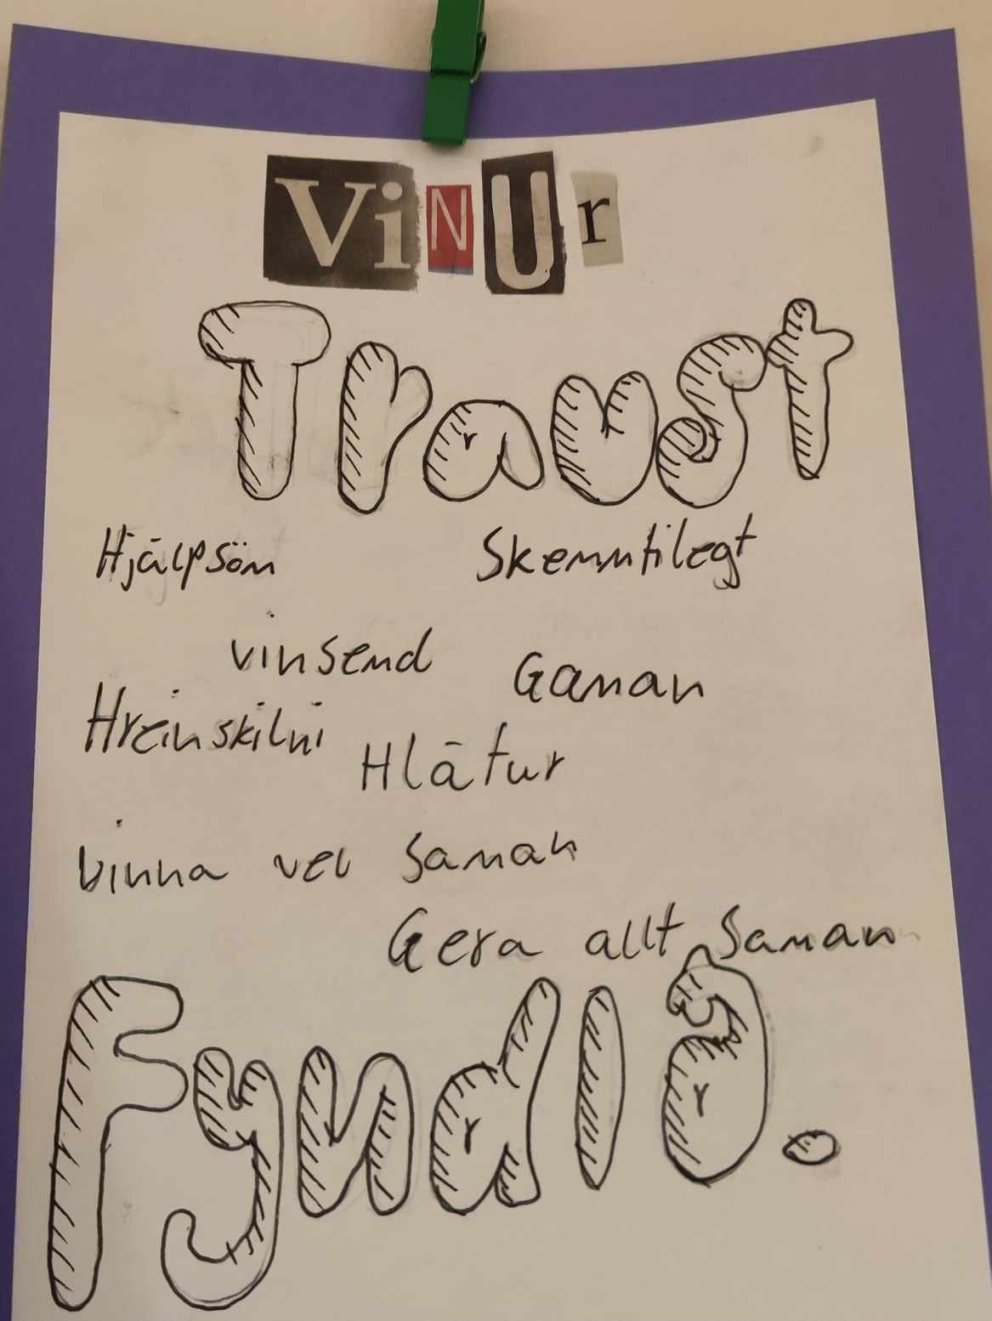 ViNUr
Traust
Hjálpsöm Skemmtilegt
vinsemd Gaman
Hreinskilni
Hlátur
vinna vel saman
Gera allt saman
Fyndið.